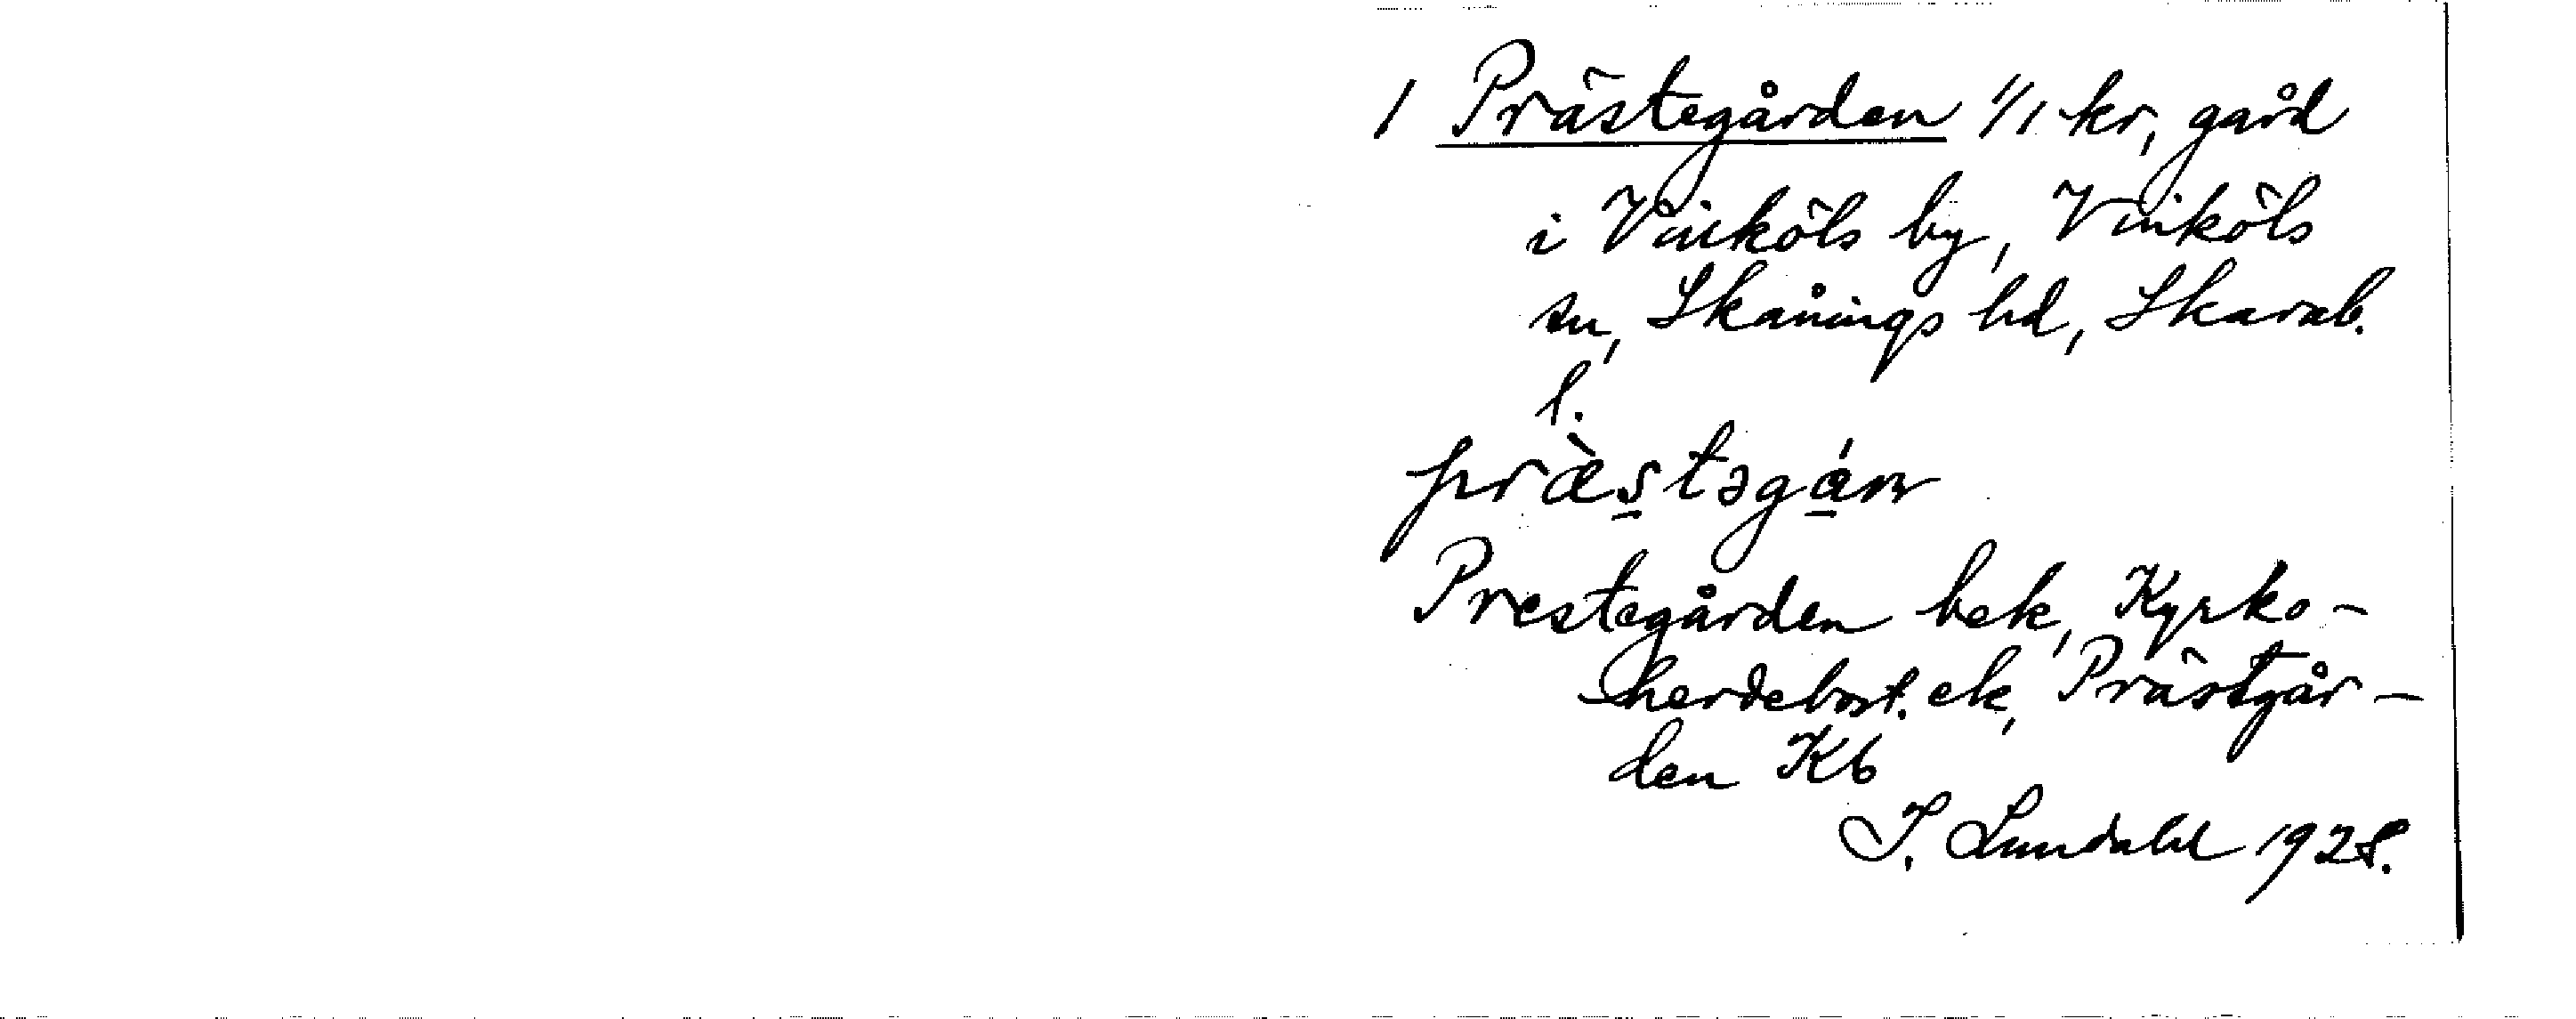 1 Prästegården 1/1 kr, gård
i Vinköls by, Vinköls
sn, Skånings hd, Skarab.
l.
præ̀stəgán
Prestegården bek, Kyrko-
herdebost. ek, Prästgår-
den Kb
I. Lundahl 1928.